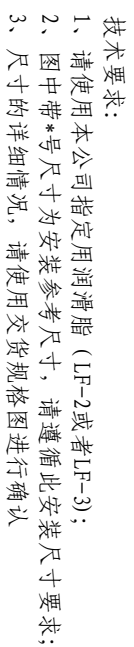 技术要求:
1、请使用本公司指定用润滑脂（LF-2或者LF-3);
2、图中带*号尺寸为安装参考尺寸，请遵循此安装尺寸要求;
3、尺寸的详细情况，请使用交货规格图进行确认